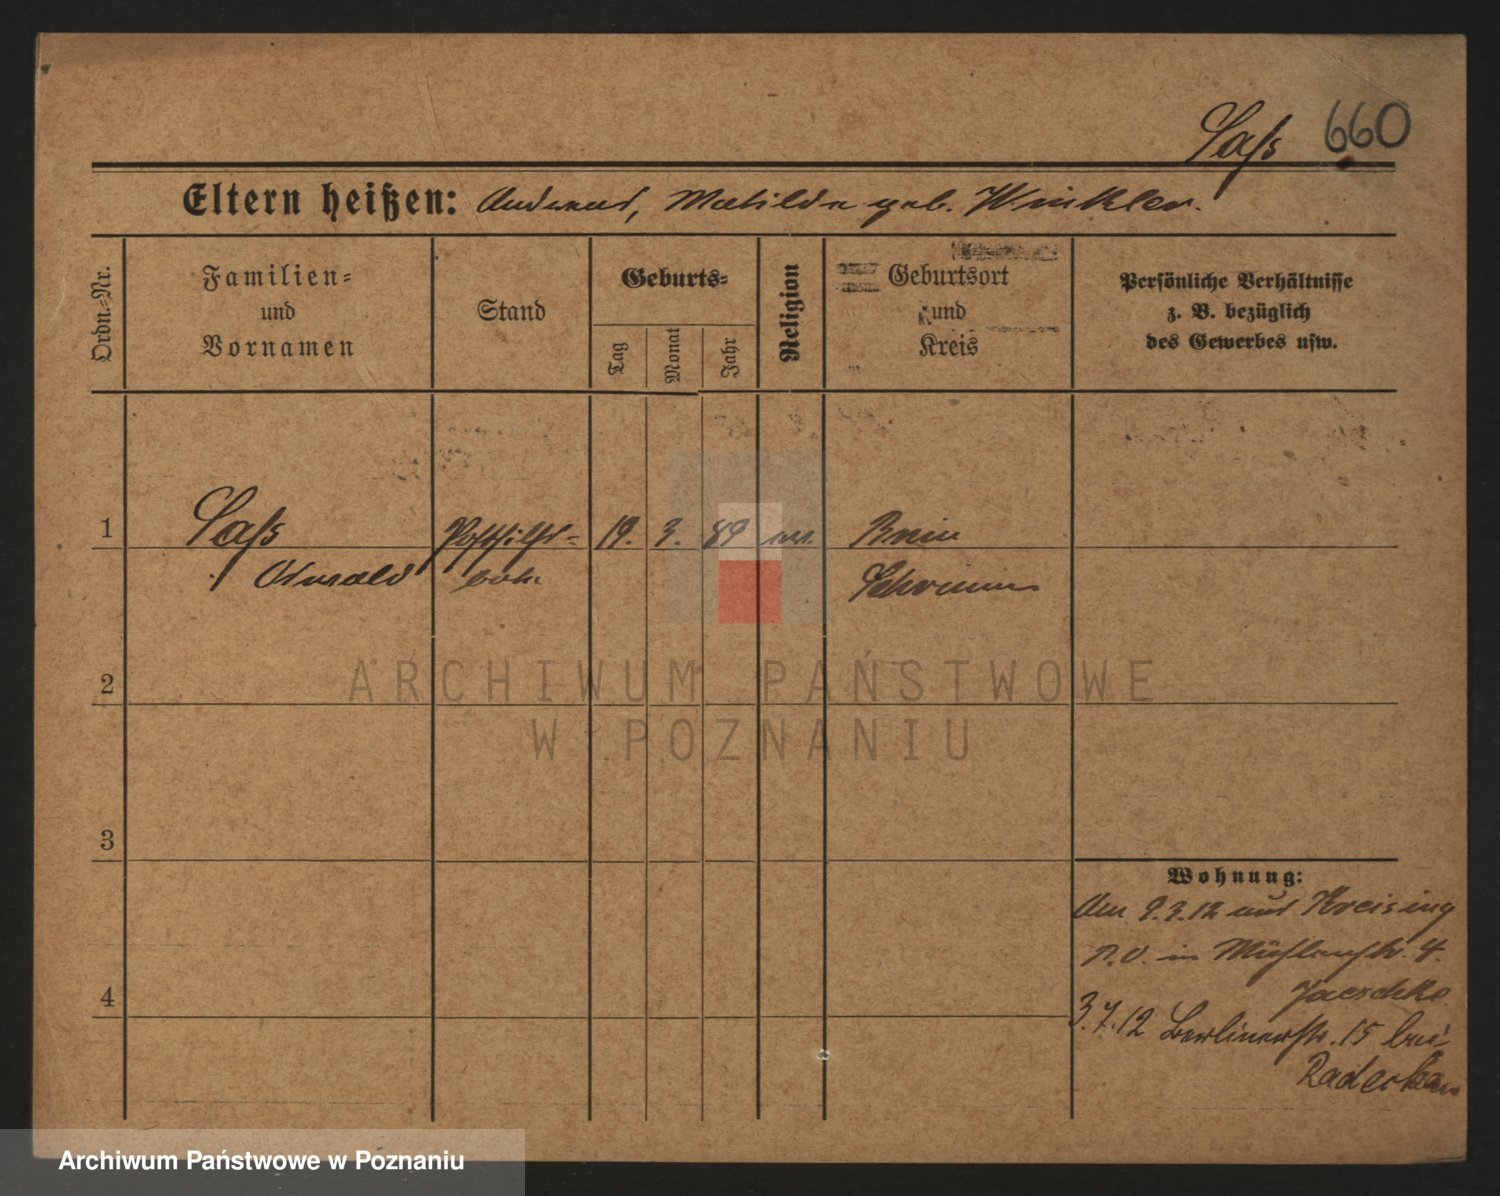 Saß 660
Eltern heißen: Andreas, Matilde geb. Winkler.
Ordn.-Nr.
Familien-
und
Vornamen
Stand
Geburts-
Tag
Monat
Jahr
Religion
Geburtsort
und
Kreis
Persönliche Verhältnisse
z. B. bezüglich
des Gewerbes usw.
1 Saß Posthilfs- 19. 3. 89
Oswald bote
Schrimm
2
3
4
Wohnung:
Am 9.3.12 aus Kreising
P.O. in Mühlenstr. 4.
Jaeschke.
3.7.12 Berlinerstr. 15 bei
ARCHIWUM PAŃSTWOWE
W POZNANIU
Archiwum Państwowe w Poznaniu